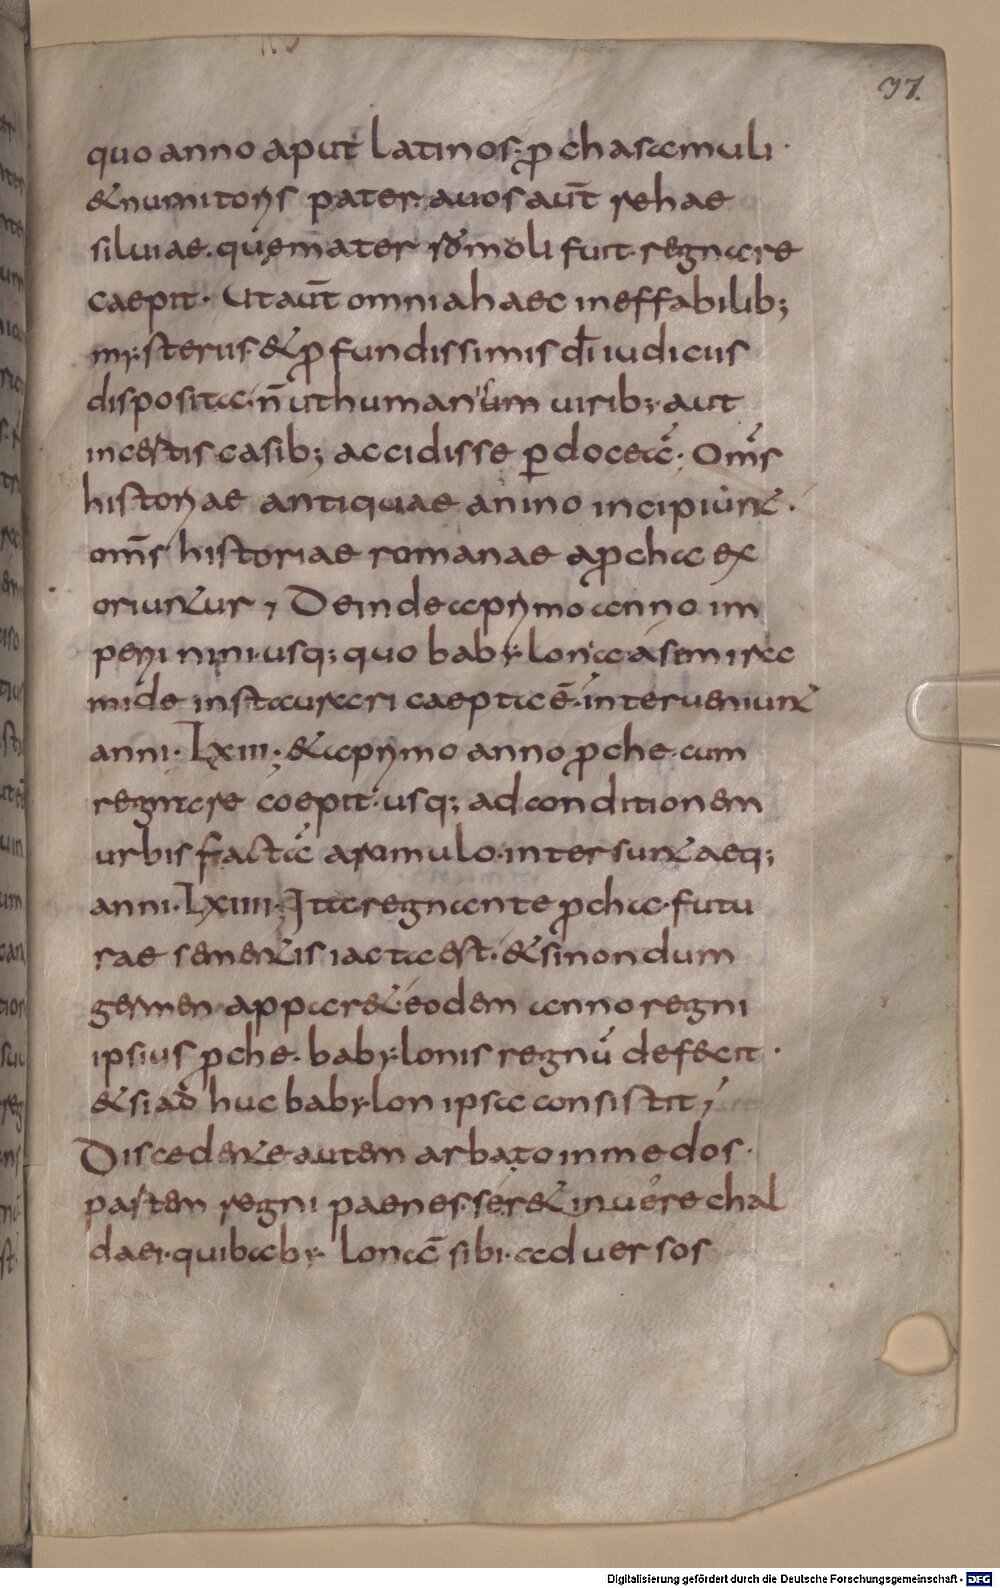 37.
quo anno aput latinos· ꝓchas aemuli·
&numitoris pater· auos aut̄ rehae
siluiae· quȩ mater romoli fuit· regnare
caepit· Ut aut̄ omnia haec ineffabilib;
mysteriis· & ꝓfundissimis dī iudiciis
disposita· n̄ ut humanis um uirib; aut
incertis casib; accidisse ꝑdocea͂· Om̄s
historiae antiquae anino incipiunt·
om̄s historiae romanae aꝓcha ex
oriuntur, Deinde a primo anno im
perii nini· usq; quo babylonia· a semira
mide instaurari caepta ē· interueniunt
anni· Lxiii; & a primo anno ꝓche· cum
regnare coepit· usq; ad conditionem
urbis facta͂ a romulo· intersunt aeq;
anni· Lxiiii· Ita regnante ꝓcha· futu
rae sementis iacta est· & si nondum
germen appar&· eodem anno regni
ipsius ꝓche· babylonis regnū defecit·
& si ad huc babylon ipsa consistit,
Discedente autem arbato in medos·
partem regni paenes· ser& inuere chal
daei· qui babylonā sibi· aduersos
Digitalisierung gefördert durch die Deutsche Forschungsgemeinschaft - DFG